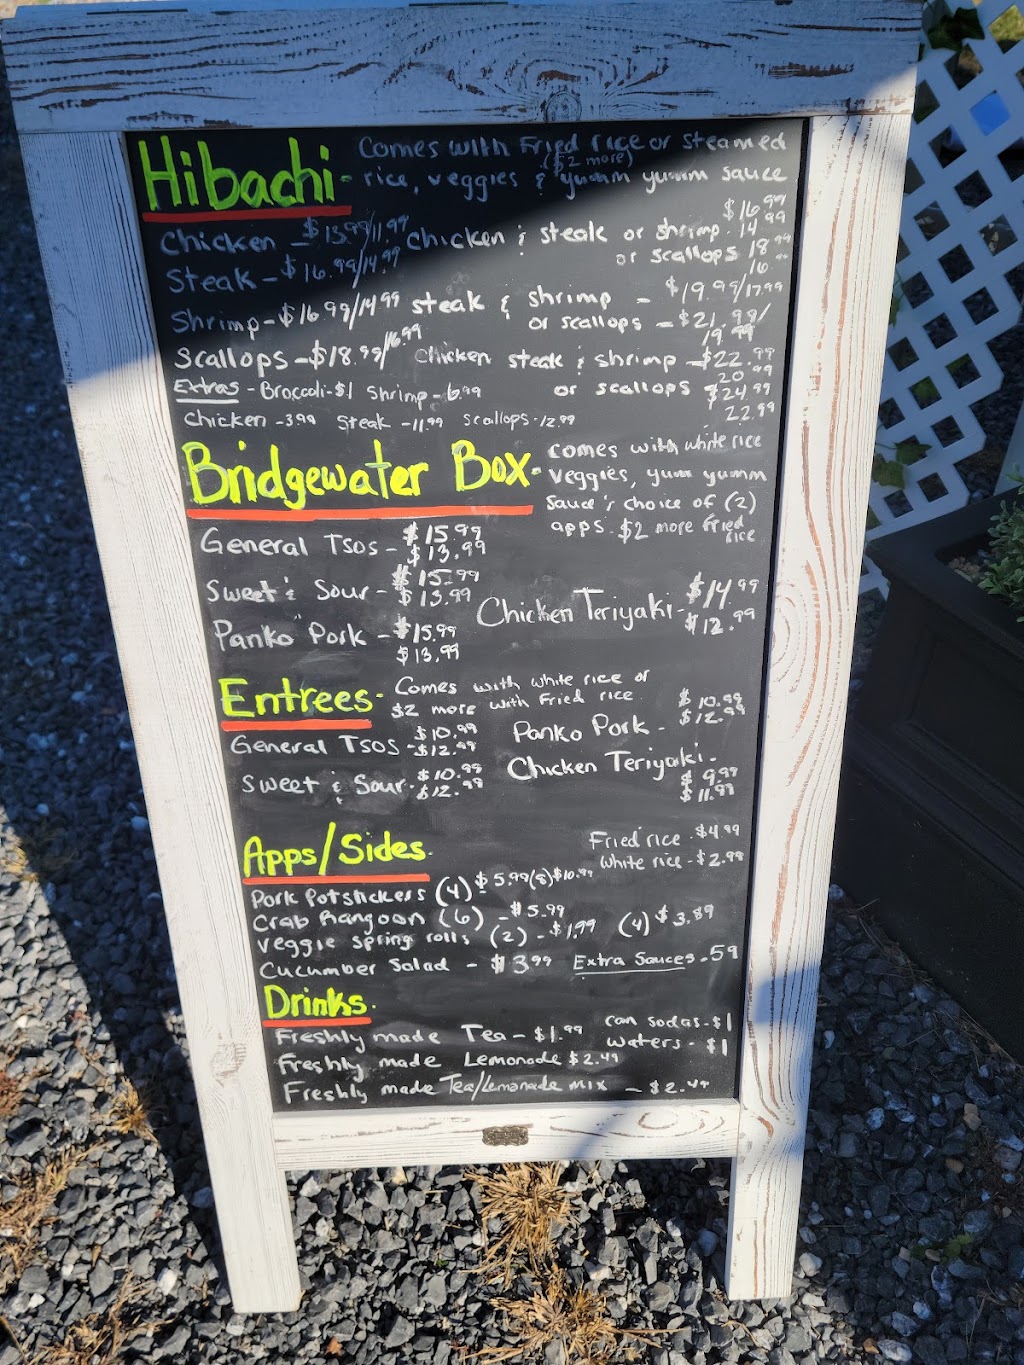 Hibachi - Comes with Fried rice or steamed
($2 more)
rice, veggies & yumm yumm sauce
Chicken - $13.99/11.99 Chicken & steak or shrimp - $16.99
14.99
Steak - $16.99/14.99 or scallops 18.99
16.99
Shrimp - $16.99/14.99 steak & shrimp - $19.99/17.99
or scallops - $21.99/
19.99
Scallops - $18.99/16.99 Chicken steak & shrimp - $22.99
20.99
Extras - Broccoli - $1 Shrimp - 6.99 or scallops $24.99
22.99
Chicken - 3.99 Steak - 11.99 Scallops - 12.99
Bridgewater Box - comes with white rice
veggies, yum yumm
sauce & choice of (2)
apps. $2 more fried
rice
General Tsos - $15.99
$13.99
Sweet & Sour - $15.99
$13.99
Chicken Teriyaki - $14.99
$12.99
Panko Pork - $15.99
$13.99
Entrees - Comes with white rice or
$2 more with Fried rice
General Tsos - $10.99
$12.99
Panko Pork - $10.99
$12.99
Sweet & Sour - $10.99
$12.99
Chicken Teriyaki -
$9.99
$11.99
Apps/Sides.
Fried rice - $4.99
White rice - $2.99
Pork Potstickers (4) $5.99 (8) $10.99
Crab Rangoon (6) - $5.99
Veggie spring rolls (2) - $1.99 (4) $3.89
Cucumber Salad - $3.99 Extra Sauces - 59
Drinks.
Freshly made Tea - $1.99 can sodas - $1
waters - $1
Freshly made Lemonade $2.49
Freshly made Tea/Lemonade mix - $2.49